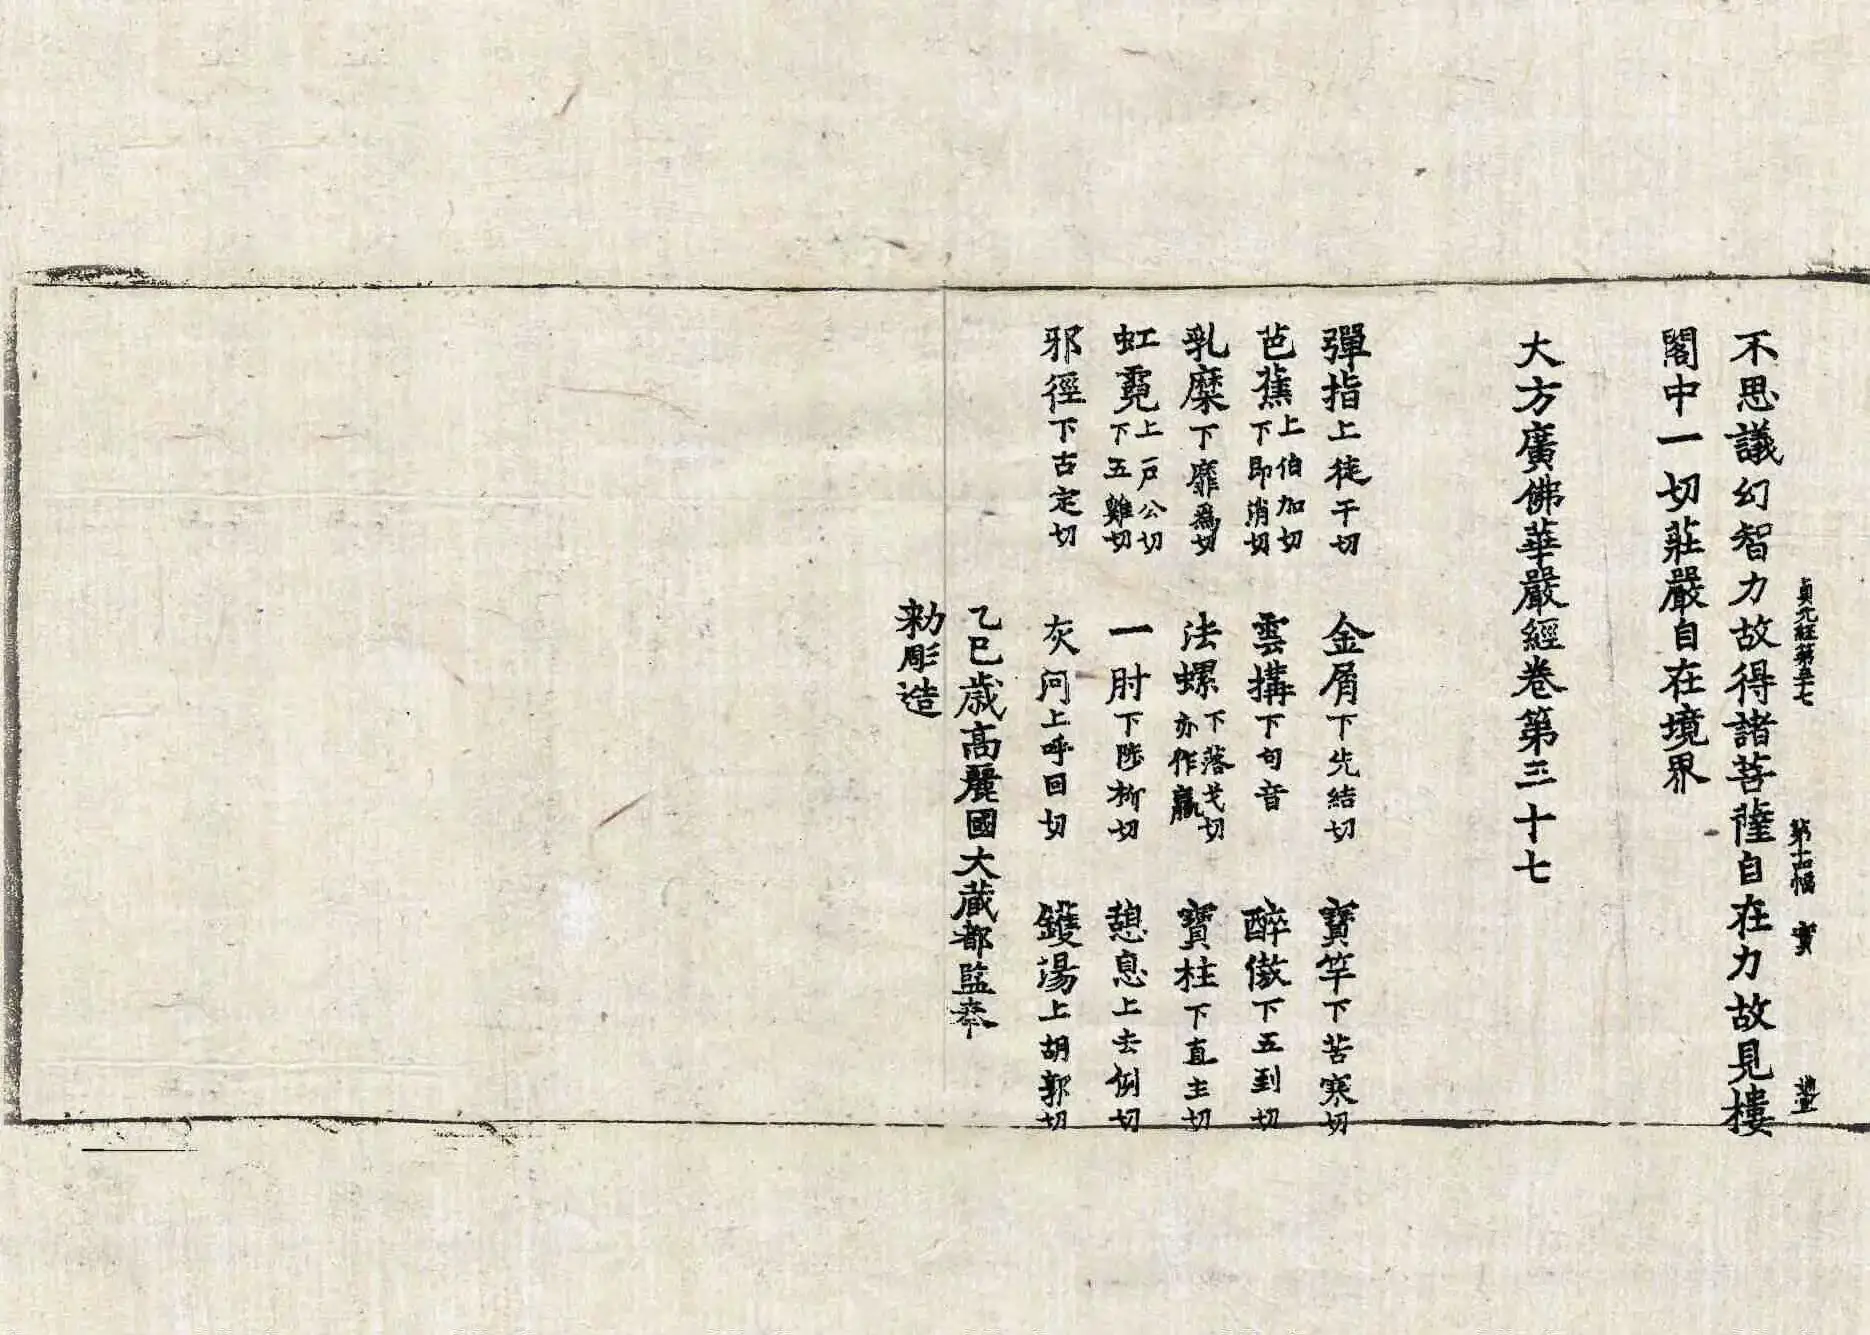 貞元経第三十七 第十四幅 寳
不思議幻智力故得諸菩薩自在力故見樓
閣中一切莊嚴自在境界
大方廣佛華嚴經卷第三十七
彈指上徒干切 金屑下先結切 寳竿下苦寒切
芭蕉上伯加切下即消切 雲搆下句音 醉傲下五到切
乳糜下靡爲切 法螺下落戈切亦作蠃 寶柱下直主切
虹霓上戶公切下五雞切 一肘下陟柳切 憩息上去例切
邪徑下古定切 灰河上呼回切 鑊湯上胡郭切
乙巳歳高麗國大藏都監奉
勑彫造